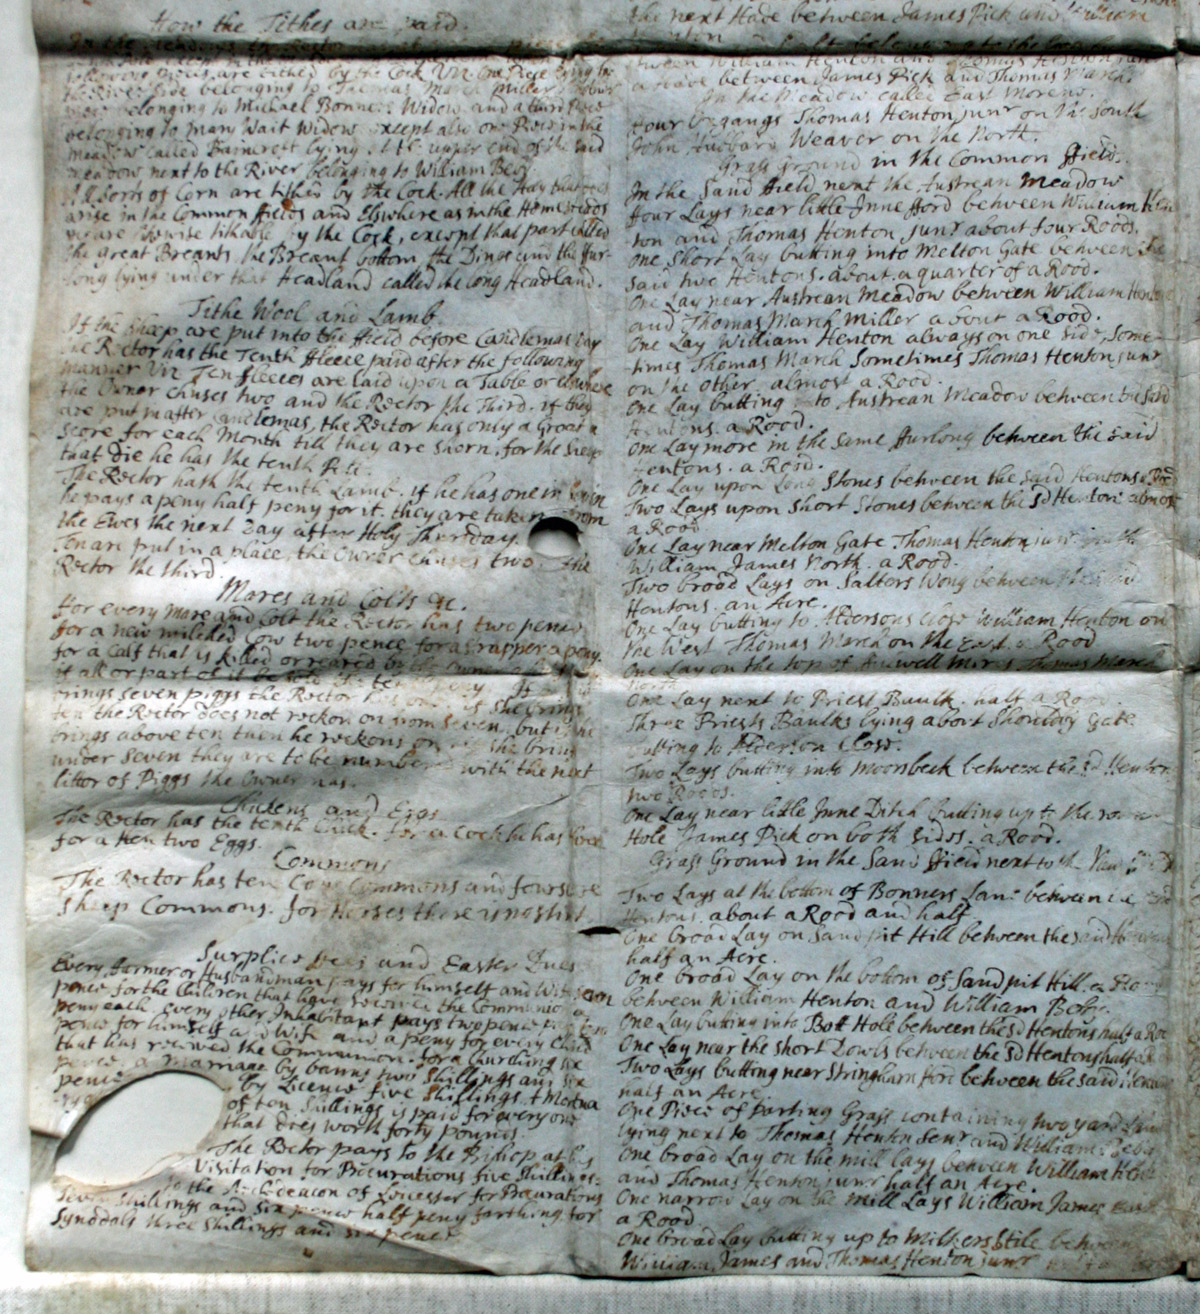 How the Tithes are paid.
following are tithed by the Cock Viz. One Piece lying by
the River side belonging to Thomas March Miller
belonging to Michael Bonners Widow and a third Piece
belonging to Mary Wait Widow except also one Piece in the
Meadow called Baincroft lying upper end of the said
meadow next to the River belonging to William Beby
All Sorts of Corn are tithed by the Cock. All the Hay that does
arise in the Common ffields and Elswhere as in the Homesteds
are likewise tithable by the Cock, except that part called
the great Breards, the Breard bottom the Dines and the ffur-
long lying under that Headland called the long Headland.
Tithe Wool and Lamb.
If the sheep are put into the ffield before Candlemas Day
the Rector has the Tenth ffleece paid after the following
manner Viz Ten ffleeces are laid upon a Table or elswhere
the Owner chuses two and the Rector the Third. if they
are put in after Candlemas, the Rector has only a Groat a
Score for each Month till they are shorn. for the sheep
that die he has the tenth
The Rector hath the tenth Lamb. if he has one in seven
he pays a peny half peny for it. they are taken from
the Ewes the next Day after Holy Thursday.
Ten are put in a place, the Owner chuses two the
Rector the third.
Mares and Colts &c.
ffor every mare and Colt the Rector has two pence
for a new milched Cow two pence for a strapper a peny.
for a Calf that is killed or reared by the Owner
if all or part of it be sold
brings seven piggs the Rector has one if She brings
ten the Rector does not reckon on from seven, but if she
brings above ten then he reckons on if she bring
under seven they are to be numbered with the next
littor of Piggs the Owner has.
Chickens and Eggs
The Rector has the tenth Chick. for a Cock he has three
for a Hen two Eggs.
Commons
The Rector has ten Cow Commons and fourscore
Sheep Commons. for Horses there is no stint.
Surplice ffees and Easter Dues
Every ffarmer or Husbandman pays for himself and Wife
pence for the Children that have received the Communion a
peny each every other Inhabitant pays two pence
pence for himself and Wife and a peny for every Child
that has received the Communion. for a Churching six
pence a Marriage by banns two Shillings and six
pence by Licence five Shillings. A Mortua
of ten Shillings is paid for every one
that does worth forty pounds.
The Rector pays to the Bishop at his
Visitation for Procurations five Shillings.
to the Archdeacon of Leicester for Procurations
Seven Shillings and six pence half peny farthing. for
Synodals three Shillings and six pence
the next Hade between James Pick and William
between William Henton and Thomas Henton junr
a Hade between James Pick and Thomas March.
In the Meadow called East Morens.
ffour Oxgangs Thomas Henton junr on the South
John Hubbard Weaver on the North.
Grass Ground in the Common ffield.
In the Sand ffield next the Austrean Meadow
ffour Lays near little June fford between William Hen
ton and Thomas Henton junr about four Roods.
One Short Lay butting into Melton Gate between the
said two Hentons. about a quarter of a Rood.
One Lay near Austrean Meadow between William Henton
and Thomas March Miller about a Rood.
One Lay William Henton always on one side, Some-
times Thomas March Sometimes Thomas Henton junr
on the other. almost a Rood.
One Lay butting to Austrean Meadow between the said
Hentons. a Rood.
One Lay more in the same ffurlong between the said
Hentons. a Rood.
One Lay upon Long Stones between the said Hentons a Rood
Two Lays upon Short Stones between the sd Hentons almost
a Rood
One Lay near Melton Gate Thomas Henton junr South
William James North. a Rood.
Two broad Lays on Salters Wong between the said
Hentons. an Acre.
One Lay butting to Aldersons Close William Henton on
the West Thomas March on the East a Rood
One Lay on the top of Thomas March
One Lay next to Priest Baulk. half a Rood
Three Priests Baulks lying about Shouldby Gate
butting to Alderson Close.
Two Lays butting into Moorsbeck between the sd Henton
two Roods.
One Lay near little June Ditch butting up to the
Hole James Pick on both sides. a Rood.
Grass Ground in the Sand ffield next to the
Two Lays at the bottom of Bonners Lane between the said
Hentons. about a Rood and half
One broad Lay on Sandpit Hill between the said Hentons
half an Acre.
One broad Lay on the bottom of Sandpit Hill. a Rood
between William Henton and William Beby.
One Lay butting into Bott Hole between the sd Hentons half a Roo
One Lay near the short Dowls between the sd Hentons half a Rood
Two Lays butting near Stringham fford between the said Hentons
half an Acre.
One Piece of parting Grass containing two yard Land
lying next to Thomas Henton Senr and William Beby
One broad Lay on the mill Lays between William Henton
and Thomas Henton junr half an Acre.
One narrow Lay on the Mill Lays William James East
a Rood
One broad Lay butting up to Milkers Stile between
William James and Thomas Henton junr